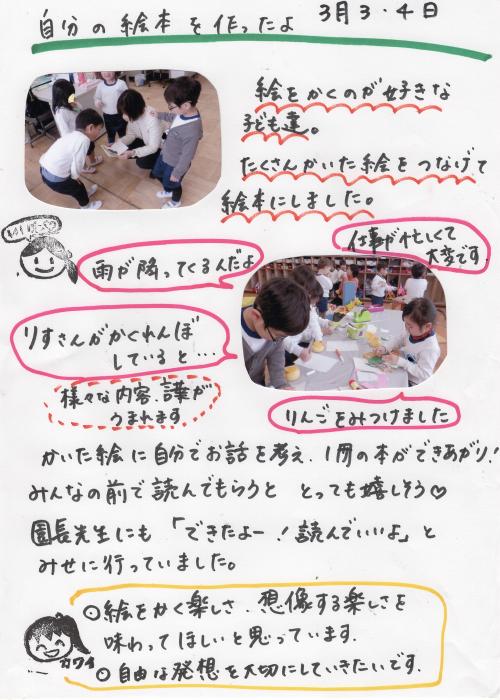 自分の絵本を作ったよ 3月3・4日
絵をかくのが好きな
子ども達。
たくさんかいた絵をつなげて
絵本にしました。
仕事が忙しくて
大変です
雨が降ってくるんだよ
りすさんがかくれんぼ
していると…
様々な内容、言葉が
うまれます
りんごをみつけました
かいた絵に自分でお話を考え、1冊の本ができあがり!
みんなの前で読んでもらうと とっても嬉しそう♡
園長先生にも「できたよー!読んでいいよ」と
みせに行っていました。
○絵をかく楽しさ、想像する楽しさを
味わってほしいと思っています。
○自由な発想を大切にしていきたいです。
カワイ